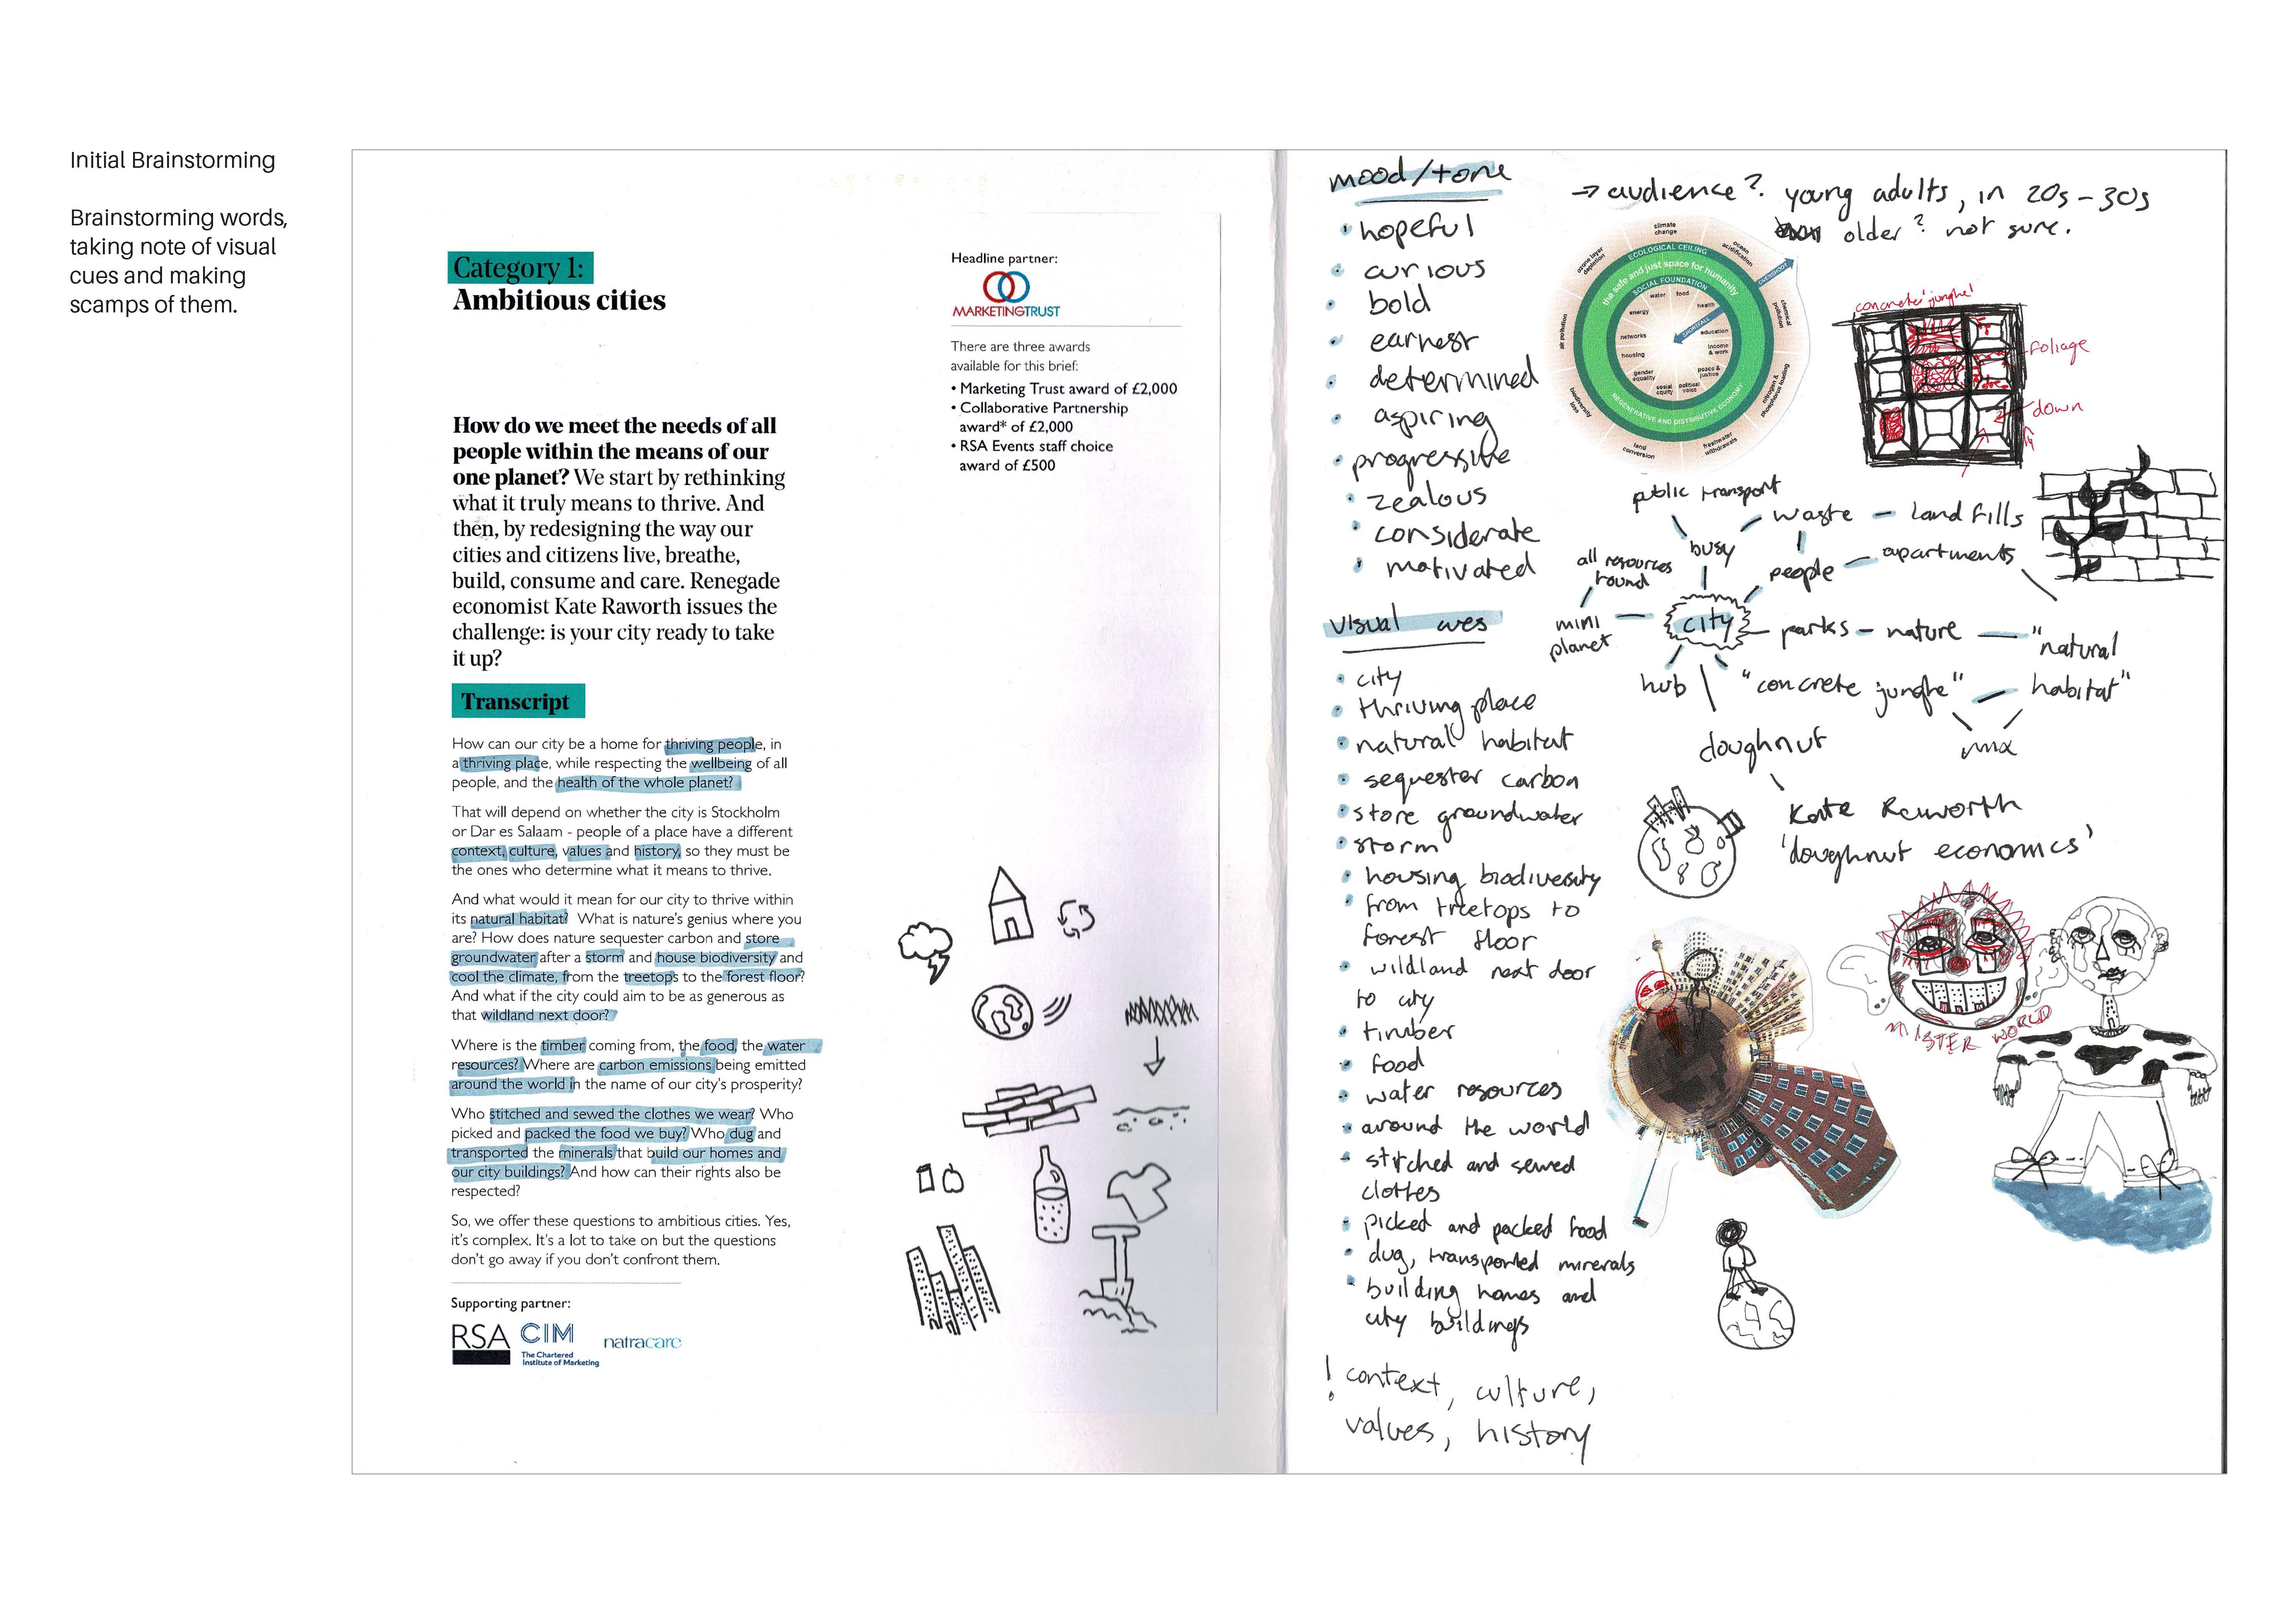 Initial Brainstorming
Brainstorming words,
taking note of visual
cues and making
scamps of them.
Category 1:
Ambitious cities
How do we meet the needs of all
people within the means of our
one planet? We start by rethinking
what it truly means to thrive. And
then, by redesigning the way our
cities and citizens live, breathe,
build, consume and care. Renegade
economist Kate Raworth issues the
challenge: is your city ready to take
it up?
Transcript
How can our city be a home for thriving people, in
a thriving place, while respecting the wellbeing of all
people, and the health of the whole planet?
That will depend on whether the city is Stockholm
or Dar es Salaam - people of a place have a different
context, culture, values and history, so they must be
the ones who determine what it means to thrive.
And what would it mean for our city to thrive within
its natural habitat? What is nature's genius where you
are? How does nature sequester carbon and store
groundwater after a storm and house biodiversity and
cool the climate, from the treetops to the forest floor?
And what if the city could aim to be as generous as
that wildland next door?
Where is the timber coming from, the food, the water
resources? Where are carbon emissions being emitted
around the world in the name of our city's prosperity?
Who stitched and sewed the clothes we wear? Who
picked and packed the food we buy? Who dug and
transported the minerals that build our homes and
our city buildings? And how can their rights also be
respected?
So, we offer these questions to ambitious cities. Yes,
it's complex. It's a lot to take on but the questions
don't go away if you don't confront them.
Supporting partner:
RSA
CIM
The Chartered
Institute of Marketing
natracare
Headline partner:
MARKETINGTRUST
There are three awards
available for this brief:
• Marketing Trust award of £2,000
• Collaborative Partnership
award* of £2,000
• RSA Events staff choice
award of £500
mood/tone
• hopeful
• curious
• bold
• earnest
• determined
• aspiring
• progressive
• zealous
• considerate
• motivated
visual cues
• city
• thriving place
• natural habitat
• sequester carbon
• store groundwater
• storm
• housing biodiversity
• from treetops to
forest floor
• wildland next door
to city
• timber
• food
• water resources
• around the world
• stitched and sewed
clothes
• picked and packed food
• dug, transported minerals
• building homes and
city buildings
! context, culture,
values, history
→ audience? young adults, in 20s - 30s
older? not sure.
climate
change
ocean
acidification
chemical
pollution
nitrogen &
phosphorus loading
freshwater
withdrawals
land
conversion
biodiversity
loss
air pollution
ozone layer
depletion
ECOLOGICAL CEILING
the safe and just space for humanity
SOCIAL FOUNDATION
OVERSHOOT
SHORTFALL
water
food
health
education
income
& work
peace &
justice
political
voice
social
equity
gender
equality
housing
networks
energy
REGENERATIVE AND DISTRIBUTIVE ECONOMY
concrete 'jungle'
foliage
down
public transport
waste - land fills
busy
people - apartments
all resources
found
mini
planet
city
parks - nature - "natural
habitat"
hub
"concrete jungle"
mix
doughnut
Kate Raworth
'doughnut economics'
MISTER WORLD